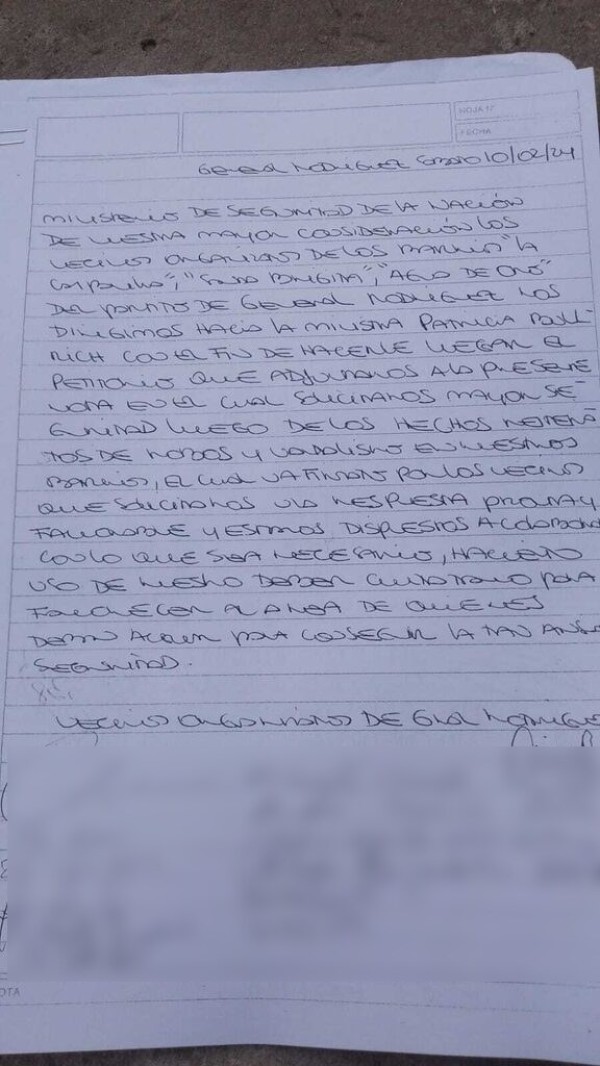 HOJA Nº
FECHA
General Rodriguez 10/02/24
MINISTERIO DE SEGURIDAD DE LA NACIÓN
DE NUESTRA MAYOR CONSIDERACIÓN LOS
VECINOS ORGANIZADOS DE LOS BARRIOS "LA
", "Santa BRIGIDA", "AGUA DE ORO"
DEL PARTIDO DE General RODRIGUEZ NOS
DIRIGIMOS HACIA LA MINISTRA PATRICIA BULL-
RICH CON EL FIN DE HACERLE LLEGAR EL
PETITORIO QUE ADJUNTAMOS A LA PRESENTE
NOTA EN EL CUAL SOLICITAMOS MAYOR SE-
GURIDAD LUEGO DE LOS HECHOS
DE ROBOS Y VANDALISMO EN NUESTROS
BARRIOS, EL CUAL VA FIRMADO POR LOS VECINOS
QUE SOLICITAMOS UNA RESPUESTA PRONTA Y
FAVORABLE Y ESTAMOS DISPUESTOS A COLABORAR
CON LO QUE SEA NECESARIO, HACIENDO
USO DE NUESTRO DEBER CIUDADANO PARA
FAVORECER A LA TAREA DE QUIENES
DEBEN ACTUAR PARA CONSEGUIR LA TAN
SEGURIDAD.
VECINOS ORGANIZADOS DE GRAL RODRIGUEZ